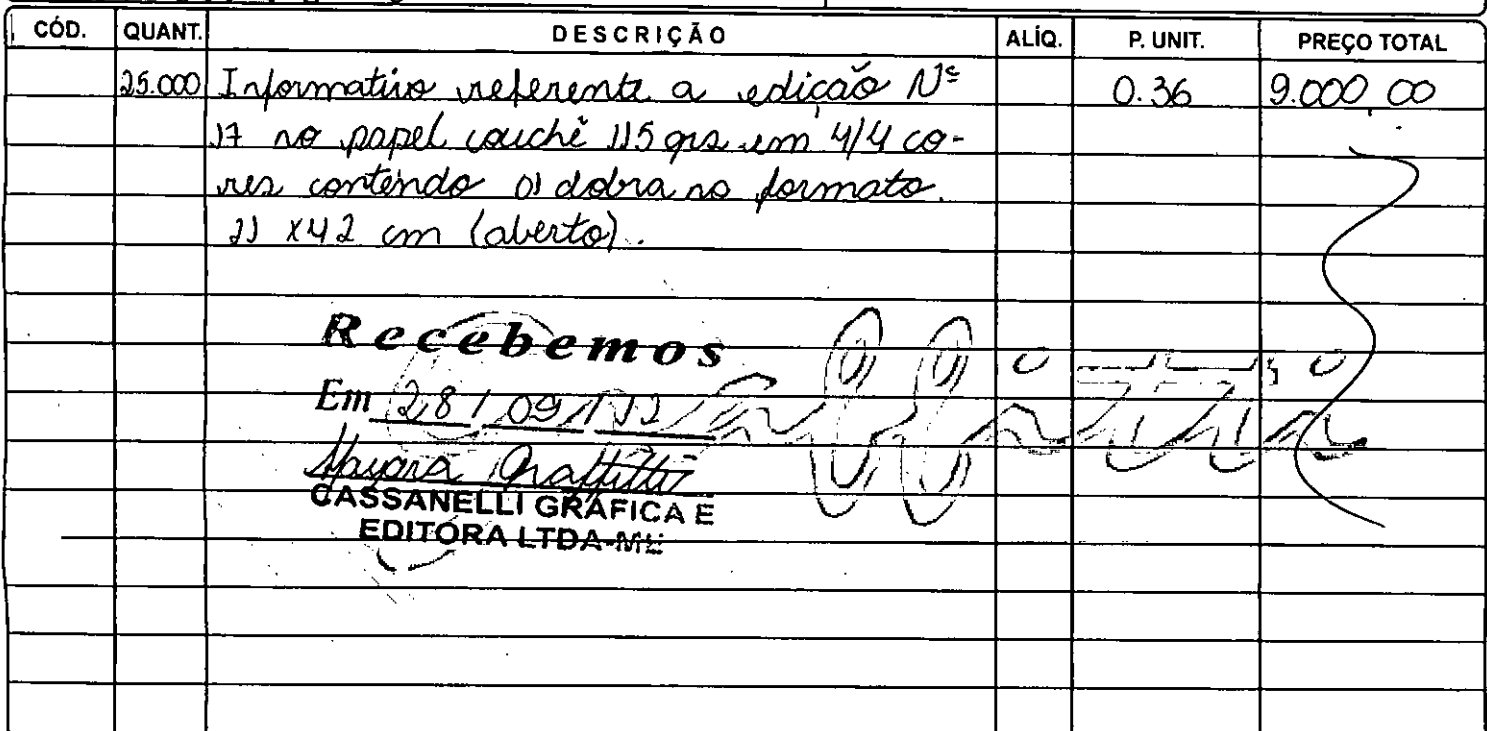 CÓD. QUANT. DESCRIÇÃO ALÍQ. P. UNIT. PREÇO TOTAL
25.000 Informativo referente a edição Nº 0.36 9.000,00
17 no papel couchê 115 grs em 4/4 co-
res contendo 01 dobra no formato.
21 x 42 cm (aberto).
Recebemos
Em 28/09/12
CASSANELLI GRÁFICA E
EDITORA LTDA-ME